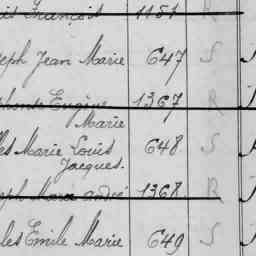 François 1151 R
eph Jean Marie 647 S
phonse Eugène 1367 R
Marie
les Marie Louis 648 S
Jacques.
eph Marie André 1368 R
les Emile Marie 649 S